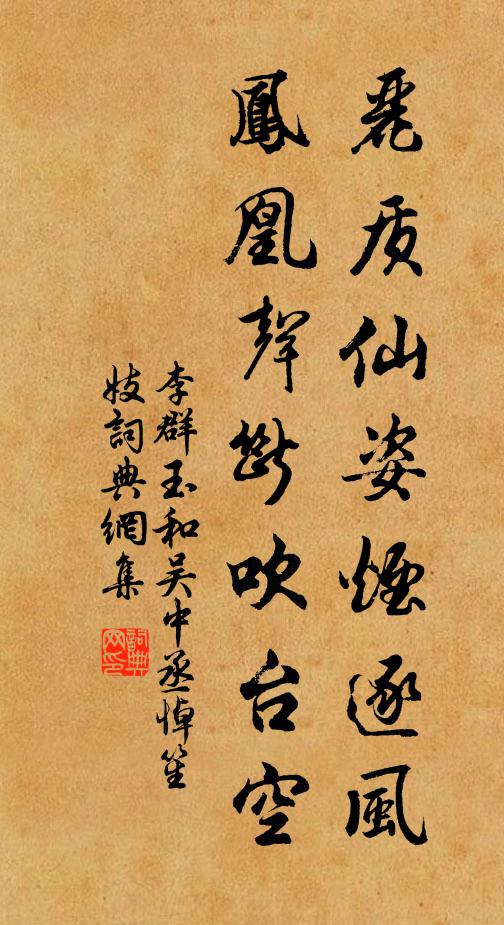 麗质仙姿煙逐風
鳳凰聲斷吹台空
李群玉和吴中丞悼笙
妓詞典網集
詞典网印